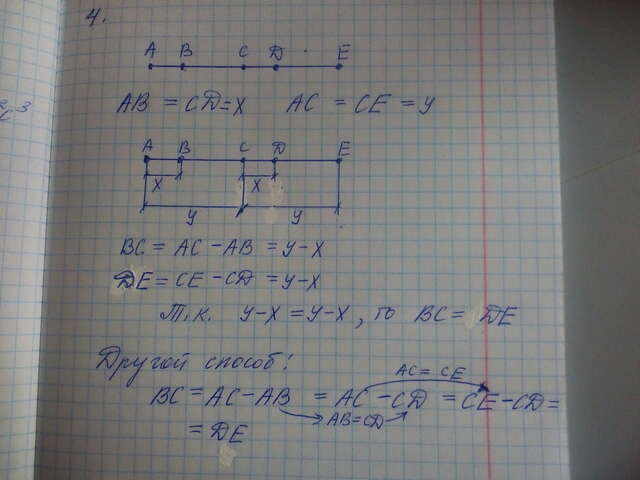 4.
A B C D E
AB = CD = X AC = CE = y
A B C D E
X X
y y
BC = AC - AB = y - X
DE = CE - CD = y - X
Т.к. y - X = y - X, то BC = DE
Другой способ:
AC = CE
BC = AC - AB = AC - CD = CE - CD =
AB = CD
= DE